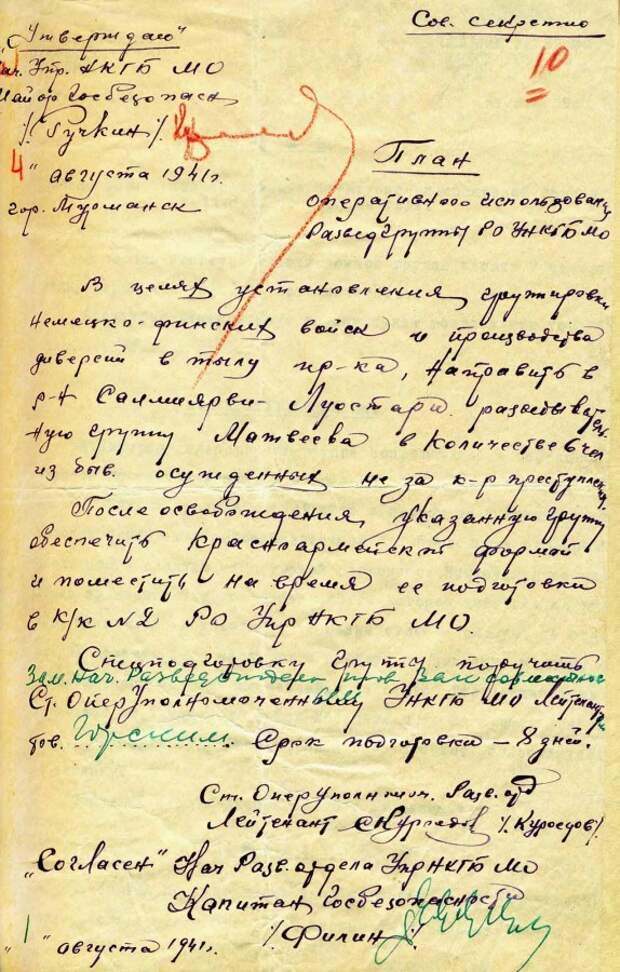 Сов. секретно
10
„Утверждаю"
Нач. Упр. НКГБ МО
Майор Госбезопасн
/. Ручкин /.
"4" августа 1941г.
гор. Мурманск
План
оперативного использован
Разведгруппы РО УНКГБ МО
В целях установления группировки
немецко-финских войск и производства
диверсий в тылу пр-ка, направить в
р-н Салмиярви-Луостари разведыватель
ную группу Матвеева в количестве 6 чел
из быв. осужденных не за к-р преступления.
После освобождения, указанную группу
обеспечить красноармейской формой
и поместить на время ее подготовки
в к/к №2 РО Упр НКГБ МО.
Спецподготовку группы поручить
Зам. Нач. Разведотдела совместно с
Ст. Оперуполномоченным УНКГБ МО Лейтенантом
тов. Горским. Срок подготовки – 8 дней.
Ст. Оперуполномоч. Разв. отд
Лейтенант /. Куроедов /.
„Согласен" Нач Разв. отдела Упр НКГБ МО
Капитан Госбезопасности
/. Филин /.
"1" августа 1941г.